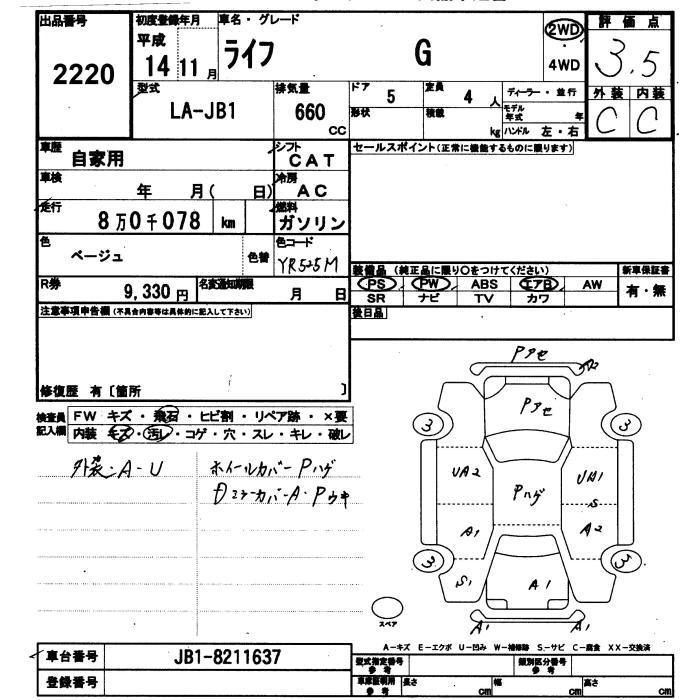 出品番号 初度登録年月 車名・グレード 評価点
2220 平成 14 11月 ライフ G 2WD・4WD 3.5
型式 排気量 ドア 定員 ディーラー・並行 外装 内装
LA-JB1 660 CC 5 4人 モデル年式 年 C C
形状 積載 kg ハンドル 左・右
車歴 自家用 シフト CAT セールスポイント(正常に機能するものに限ります)
車検 年 月( 日) 冷房 AC
走行 8万0千078 km 燃料 ガソリン
色 ベージュ 色替 色コード YR525M
装備品 (純正品に限り○をつけてください) 新車保証書
PS PW ABS エアB AW 有・無
SR ナビ TV カワ
R券 9,330円 名変通知期限 月 日
後日品
注意事項申告欄(不具合内容等は具体的に記入して下さい)
修復歴 有〔箇所 〕
検査員記入欄 FW キズ・飛石・ヒビ割・リペア跡・×要
内装 キズ・汚レ・コゲ・穴・スレ・キレ・破レ
外装:A-U ホイールカバーPハゲ
Dミラーカバー A・Pウキ
Pアセ A2
Pアセ
3 3
UA2 Pハゲ UA1
S
A1 A2
3 3
S1 A1
A1 A1
スペア
A-キズ E-エクボ U-凹み W-補修跡 S-サビ C-腐食 XX-交換済
車台番号 JB1-8211637 型式指定番号 参考 類別区分番号 参考
登録番号 車庫証明用 参考 長さ cm 幅 cm 高さ cm